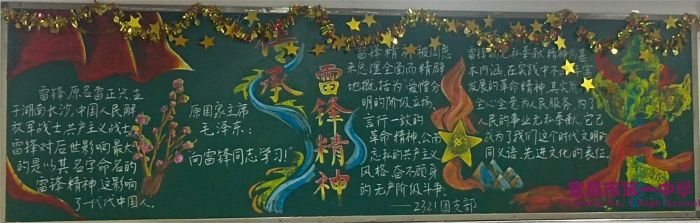 传承
雷锋精神
雷锋,原名雷正兴,生
于湖南长沙,中国人民解
放军战士,共产主义战士,
雷锋对后世影响最大
的是以其名字命名的
雷锋精神,这影响
了一代代中国人。
原国家主席
毛泽东:
向雷锋同志学习!
雷锋精神被周恩
来总理全面而精辟
地概括为“爱憎分
明的阶级立场、
言行一致的
革命精神、公而
忘私的共产主义
风格、奋不顾身
的无产阶级斗争。
——2321团支部
雷锋的无私奉献精神为基
本内涵,在实践中不
发展的革命精神,其实
全心全意为人民服务,为了
人民的事业无私奉献,它已
成为了我们这个时代文明的
同义语、先进文化的表征。
第一中学
High School